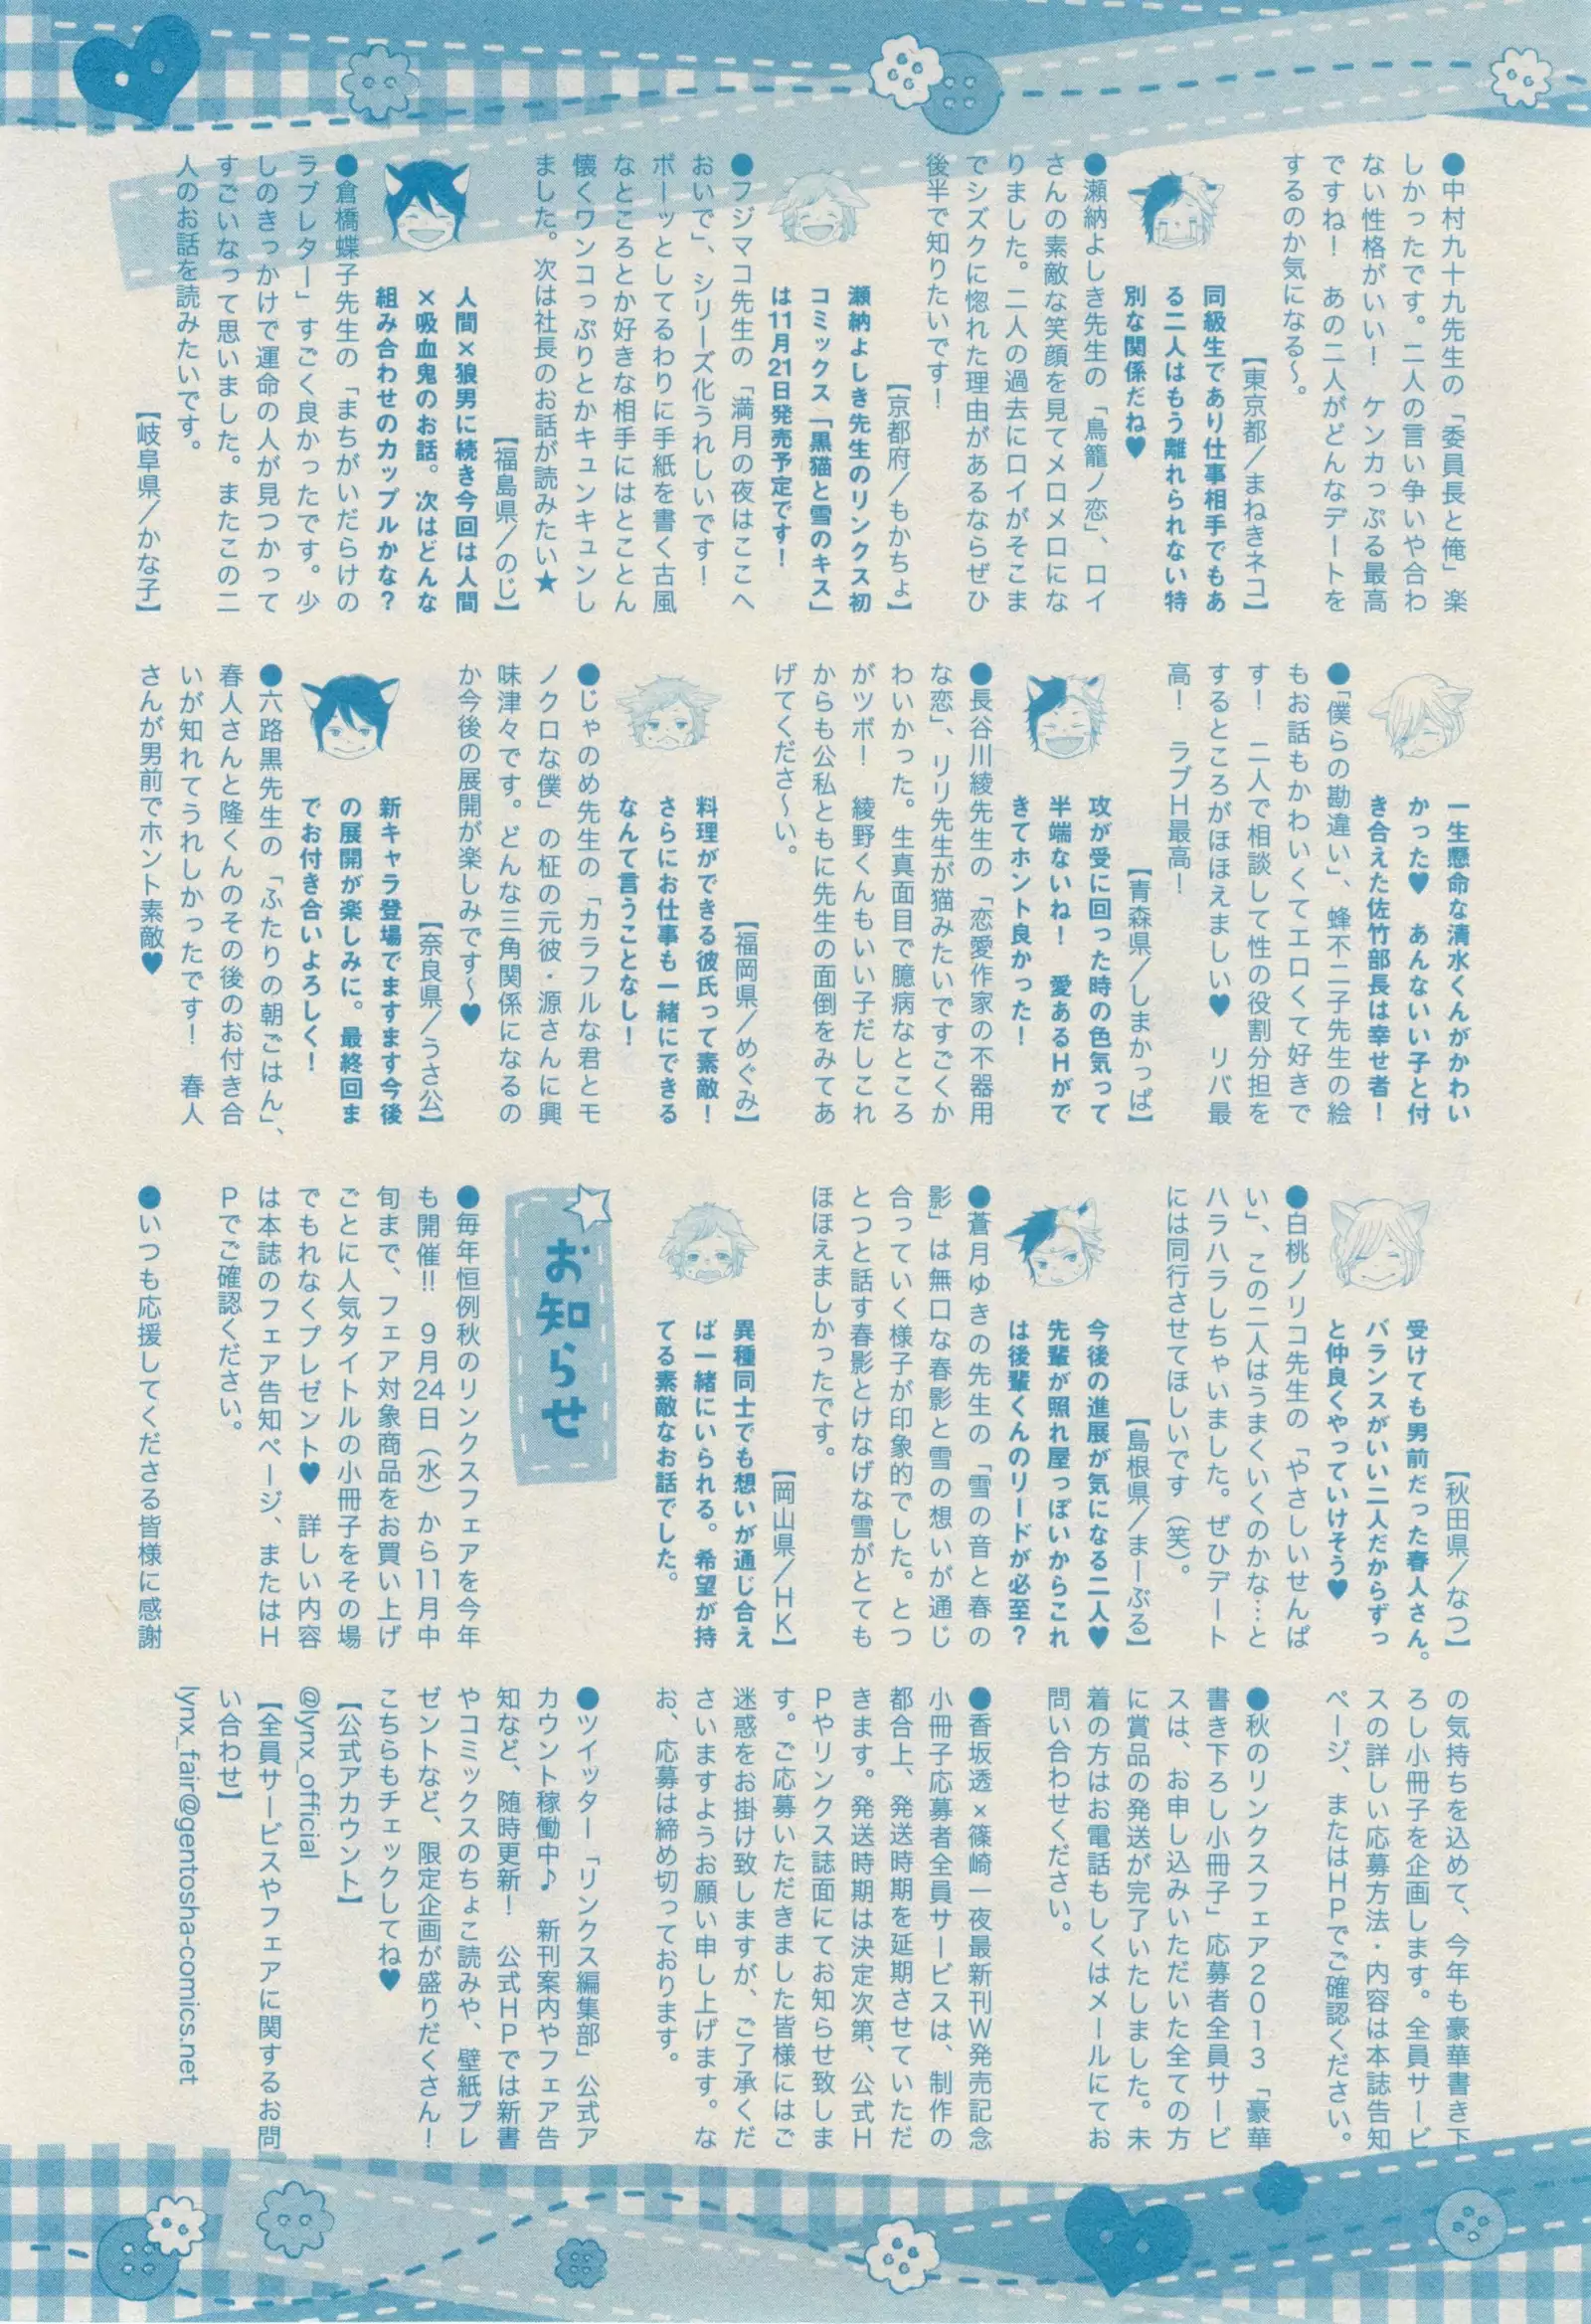 ●中村九十九先生の「委員長と俺」楽
しかったです。二人の言い争いや合わ
ない性格がいい！　ケンカっぷる最高
ですね！　あの二人がどんなデートを
するのか気になる～。
【東京都／まねきネコ】
同級生であり仕事相手でもあ
る二人はもう離れられない特
別な関係だね♥
●瀬納よしき先生の「鳥籠ノ恋」、ロイ
さんの素敵な笑顔を見てメロメロにな
りました。二人の過去にロイがそこま
でシズクに惚れた理由があるならぜひ
後半で知りたいです！
【京都府／もかちょ】
瀬納よしき先生のリンクス初
コミックス「黒猫と雪のキス」
は11月21日発売予定です！
●フジマコ先生の「満月の夜はここへ
おいで」、シリーズ化うれしいです！
ボーッとしてるわりに手紙を書く古風
なところとか好きな相手にはとことん
懐くワンコっぷりとかキュンキュンし
ました。次は社長のお話が読みたい★
【福島県／のじ】
人間×狼男に続き今回は人間
×吸血鬼のお話。次はどんな
組み合わせのカップルかな？
●倉橋蝶子先生の「まちがいだらけの
ラブレター」すごく良かったです。少
しのきっかけで運命の人が見つかって
すごいなって思いました。またこの二
人のお話を読みたいです。
【岐阜県／かな子】
一生懸命な清水くんがかわい
かった♥　あんないい子と付
き合えた佐竹部長は幸せ者！
●「僕らの勘違い」、蜂不二子先生の絵
もお話もかわいくてエロくて好きで
す！　二人で相談して性の役割分担を
するところがほほえましい♥　リバ最
高！　ラブＨ最高！
【青森県／しまかっぱ】
攻が受に回った時の色気って
半端ないね！　愛あるＨがで
きてホント良かった！
●長谷川綾先生の「恋愛作家の不器用
な恋」、リリ先生が猫みたいですごくか
わいかった。生真面目で臆病なところ
がツボ！　綾野くんもいい子だしこれ
からも公私ともに先生の面倒をみてあ
げてくださ～い。
【福岡県／めぐみ】
料理ができる彼氏って素敵！
さらにお仕事も一緒にできる
なんて言うことなし！
●じゃのめ先生の「カラフルな君とモ
ノクロな僕」の柾の元彼・源さんに興
味津々です。どんな三角関係になるの
か今後の展開が楽しみです～♥
【奈良県／うさ公】
新キャラ登場でますます今後
の展開が楽しみに。最終回ま
でお付き合いよろしく！
●六路黒先生の「ふたりの朝ごはん」、
春人さんと隆くんのその後のお付き合
いが知れてうれしかったです！　春人
さんが男前でホント素敵♥
【秋田県／なつ】
受けても男前だった春人さん。
バランスがいい二人だからずっ
と仲良くやっていけそう♥
●白桃ノリコ先生の「やさしいせんぱ
い」、この二人はうまくいくのかな…と
ハラハラしちゃいました。ぜひデート
には同行させてほしいです（笑）。
【島根県／まーぶる】
今後の進展が気になる二人♥
先輩が照れ屋っぽいからこれ
は後輩くんのリードが必至？
●蒼月ゆきの先生の「雪の音と春の
影」は無口な春影と雪の想いが通じ
合っていく様子が印象的でした。とつ
とつと話す春影とけなげな雪がとても
ほほえましかったです。
【岡山県／ＨＫ】
異種同士でも想いが通じ合え
ば一緒にいられる。希望が持
てる素敵なお話でした。
お知らせ
●毎年恒例秋のリンクスフェアを今年
も開催!!　9月24日（水）から11月中
旬まで、フェア対象商品をお買い上げ
ごとに人気タイトルの小冊子をその場
でもれなくプレゼント♥　詳しい内容
は本誌のフェア告知ページ、またはＨ
Ｐでご確認ください。
●いつも応援してくださる皆様に感謝
の気持ちを込めて、今年も豪華書き下
ろし小冊子を企画します。全員サービ
スの詳しい応募方法・内容は本誌告知
ページ、またはＨＰでご確認ください。
●秋のリンクスフェア２０１３「豪華
書き下ろし小冊子」応募者全員サービ
スは、お申し込みいただいた全ての方
に賞品の発送が完了いたしました。未
着の方はお電話もしくはメールにてお
問い合わせください。
●香坂透×篠崎一夜最新刊Ｗ発売記念
小冊子応募者全員サービスは、制作の
都合上、発送時期を延期させていただ
きます。発送時期は決定次第、公式Ｈ
Ｐやリンクス誌面にてお知らせ致しま
す。ご応募いただきました皆様にはご
迷惑をお掛け致しますが、ご了承くだ
さいますようお願い申し上げます。な
お、応募は締め切っております。
●ツイッター「リンクス編集部」公式ア
カウント稼働中♪　新刊案内やフェア告
知など、随時更新！　公式ＨＰでは新書
やコミックスのちょこ読みや、壁紙プレ
ゼントなど、限定企画が盛りだくさん！
こちらもチェックしてね♥
【公式アカウント】
@lynx_official
【全員サービスやフェアに関するお問
い合わせ】
lynx_fair@gentosha-comics.net